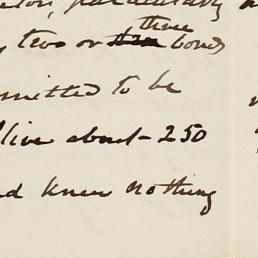 particularly
three
two or bonds
mitted to be
live about 250
knew nothing